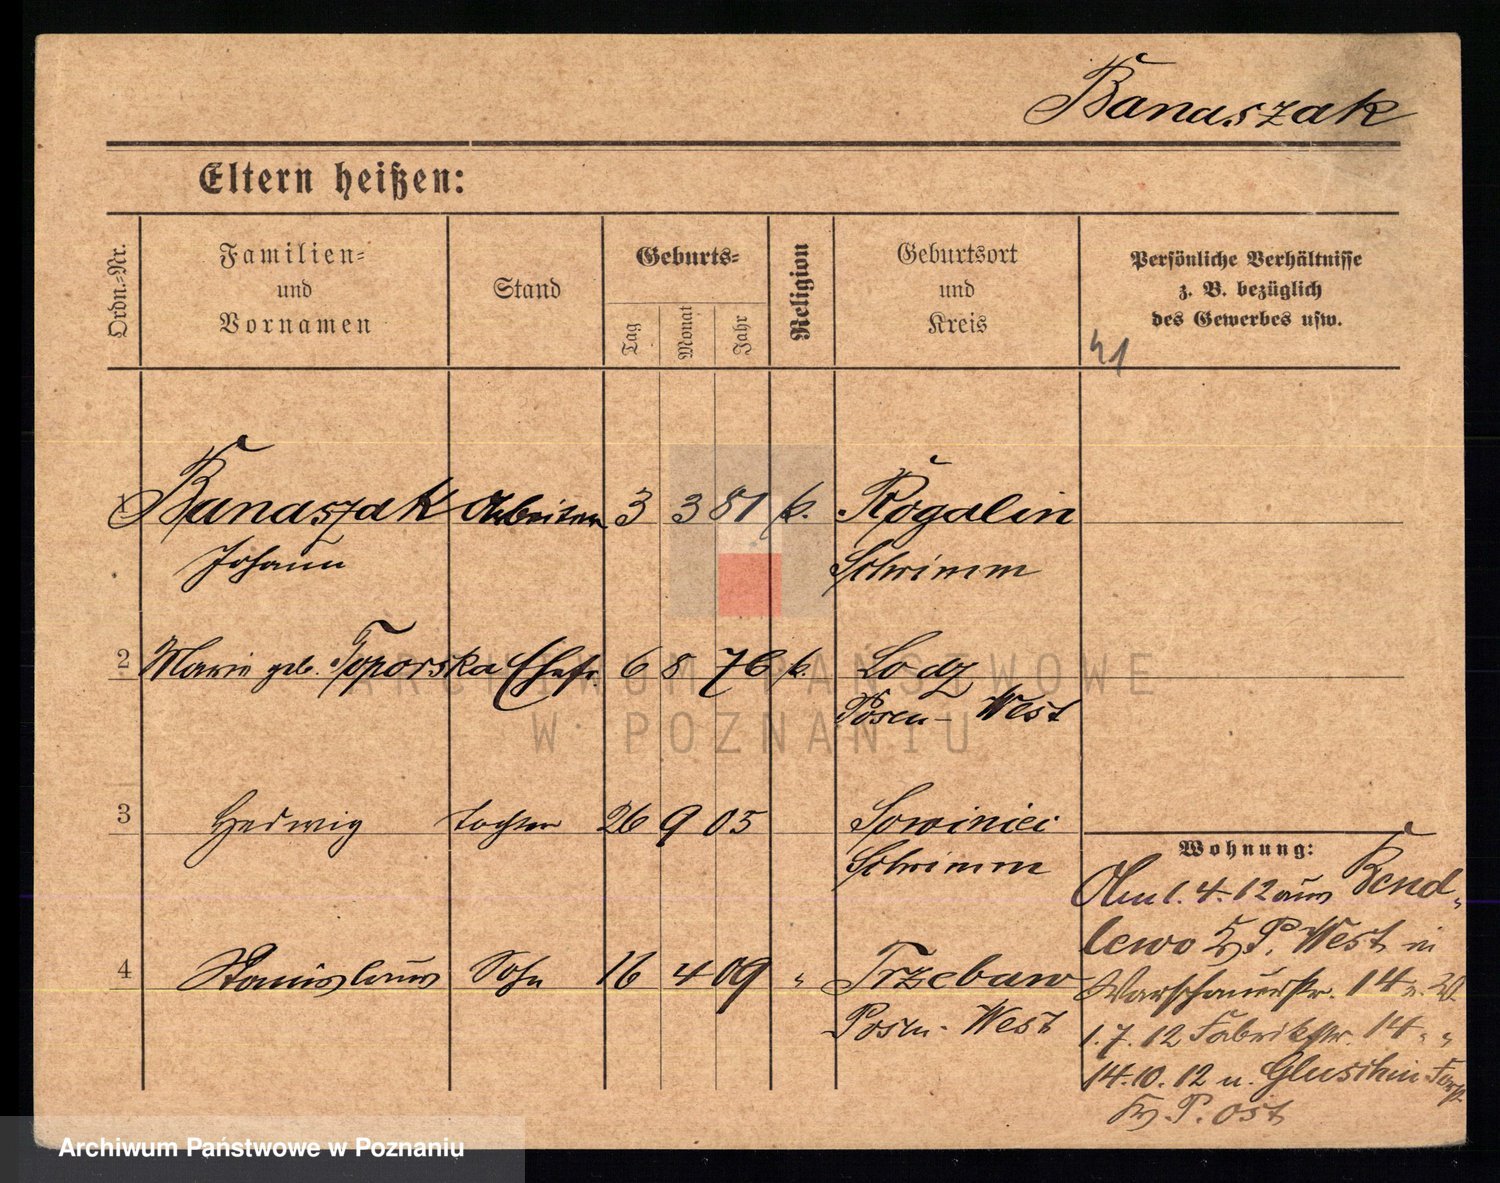 Banaszak
Eltern heißen:
Ordn.-Nr.
Familien-
und
Vornamen
Stand
Geburts-
Tag
Monat
Jahr
Religion
Geburtsort
und
Kreis
Persönliche Verhältnisse
z. B. bezüglich
des Gewerbes usw.
41
1 Banaszak Arbeiter 3 3 81 k. Rogalin
Johann Schrimm
2 Marie geb. Toporska Ehefr. 6 8 76 k. Lodz
Posen-West
3 Hedwig Tochter 26 9 05 Sowiniec
Schrimm
4 Stanislaus Sohn 16 4 09 " Trzebaw
Posen-West
Wohnung:
Am 1. 4. 12 aus Bend-
lewo Kr. P. West in
Warschauerstr. 14
1. 7. 12 Fabrikstr. 14 " "
14. 10. 12 n. Gluschin
Kr. P. Ost
ARCHIWUM PAŃSTWOWE
W POZNANIU
Archiwum Państwowe w Poznaniu